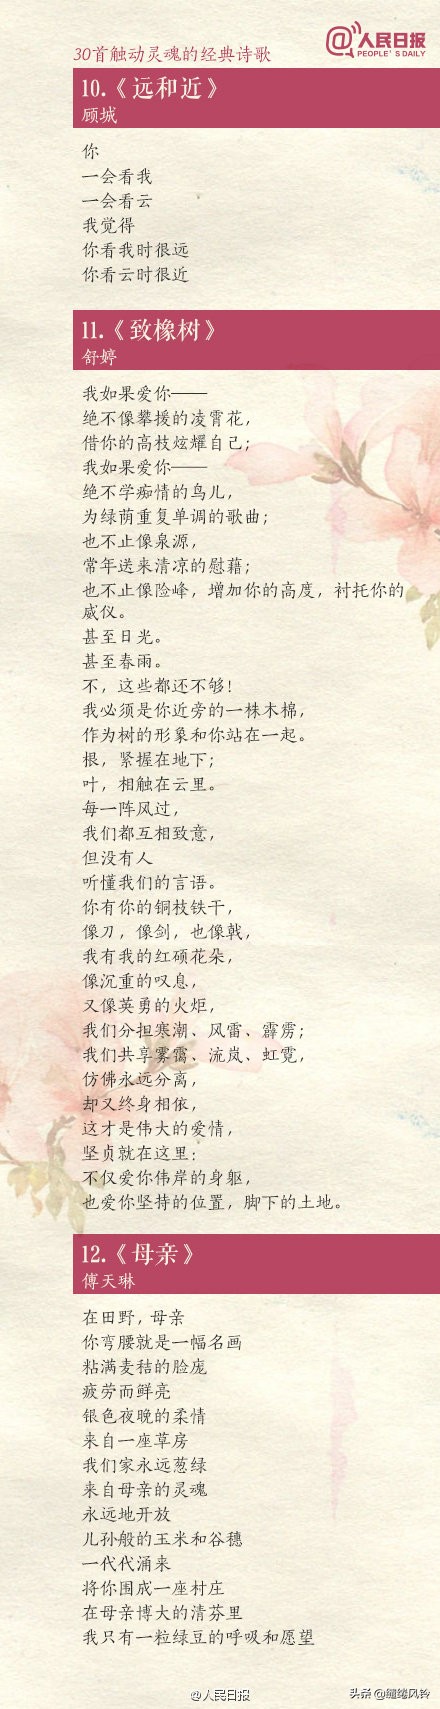 30首触动灵魂的经典诗歌
@人民日报
PEOPLE'S DAILY
10.《远和近》
顾城
你
一会看我
一会看云
我觉得
你看我时很远
你看云时很近
11.《致橡树》
舒婷
我如果爱你——
绝不像攀援的凌霄花，
借你的高枝炫耀自己；
我如果爱你——
绝不学痴情的鸟儿，
为绿荫重复单调的歌曲；
也不止像泉源，
常年送来清凉的慰藉；
也不止像险峰，增加你的高度，衬托你的
威仪。
甚至日光。
甚至春雨。
不，这些都还不够！
我必须是你近旁的一株木棉，
作为树的形象和你站在一起。
根，紧握在地下；
叶，相触在云里。
每一阵风过，
我们都互相致意，
但没有人
听懂我们的言语。
你有你的铜枝铁干，
像刀，像剑，也像戟，
我有我的红硕花朵，
像沉重的叹息，
又像英勇的火炬，
我们分担寒潮、风雷、霹雳；
我们共享雾霭、流岚、虹霓，
仿佛永远分离，
却又终身相依，
这才是伟大的爱情，
坚贞就在这里：
不仅爱你伟岸的身躯，
也爱你坚持的位置，脚下的土地。
12.《母亲》
傅天琳
在田野，母亲
你弯腰就是一幅名画
粘满麦秸的脸庞
疲劳而鲜亮
银色夜晚的柔情
来自一座草房
我们家永远葱绿
来自母亲的灵魂
永远地开放
儿孙般的玉米和谷穗
一代代涌来
将你围成一座村庄
在母亲博大的清芬里
我只有一粒绿豆的呼吸和愿望
@人民日报
头条 @缱绻风铃